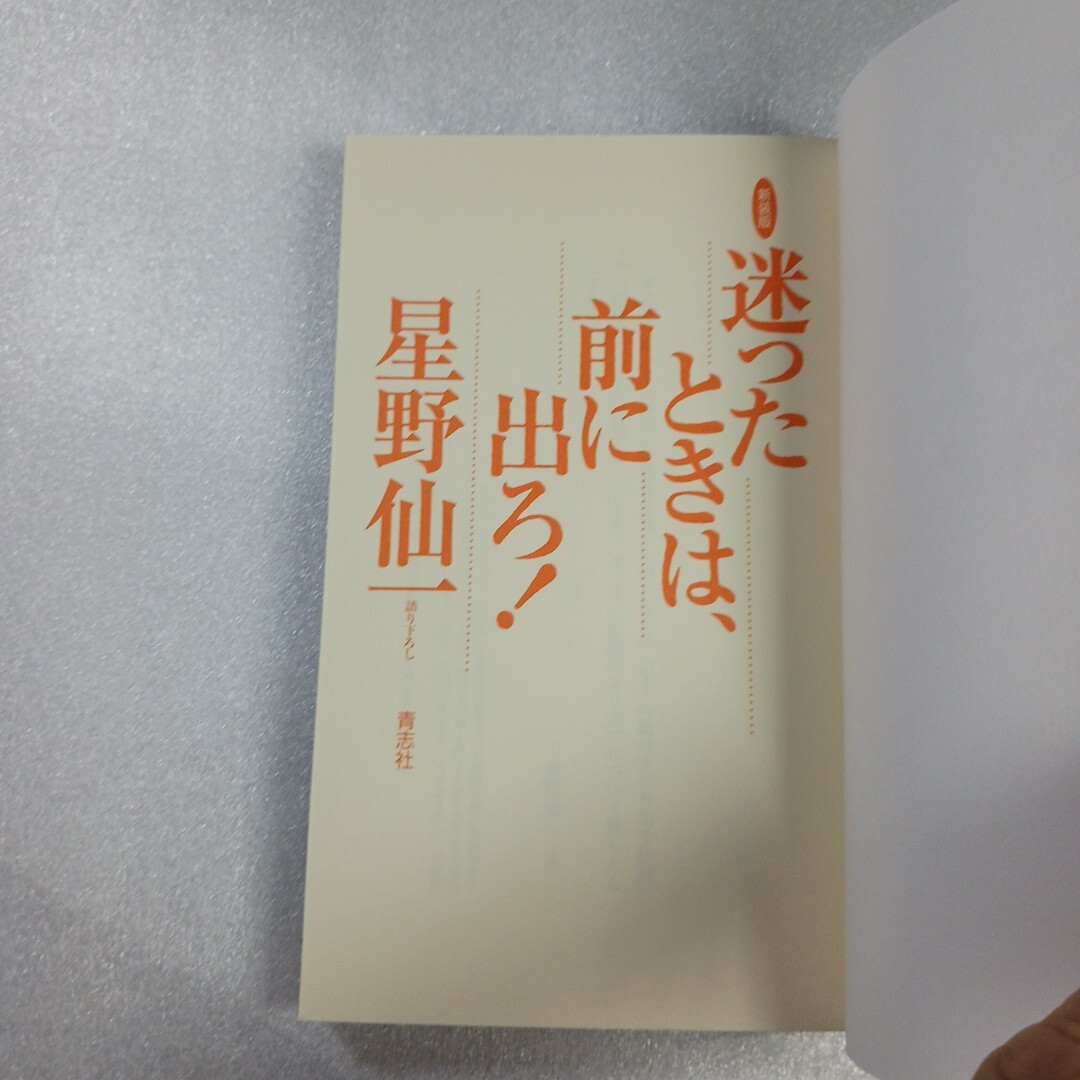 新装版
迷った
ときは、
前に
出ろ!
星野仙一
語り下ろし
青志社